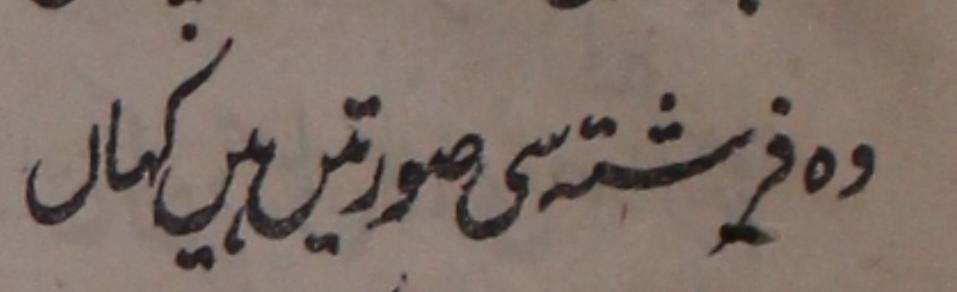 وہ فرشتہ سی صورتیں ہیں کہاں